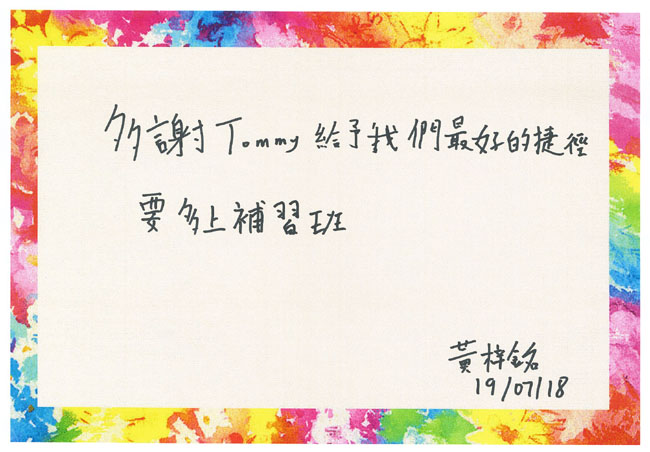 多謝Tommy給予我們最好的捷徑
要多上補習班
黃梓銘
19/07/18